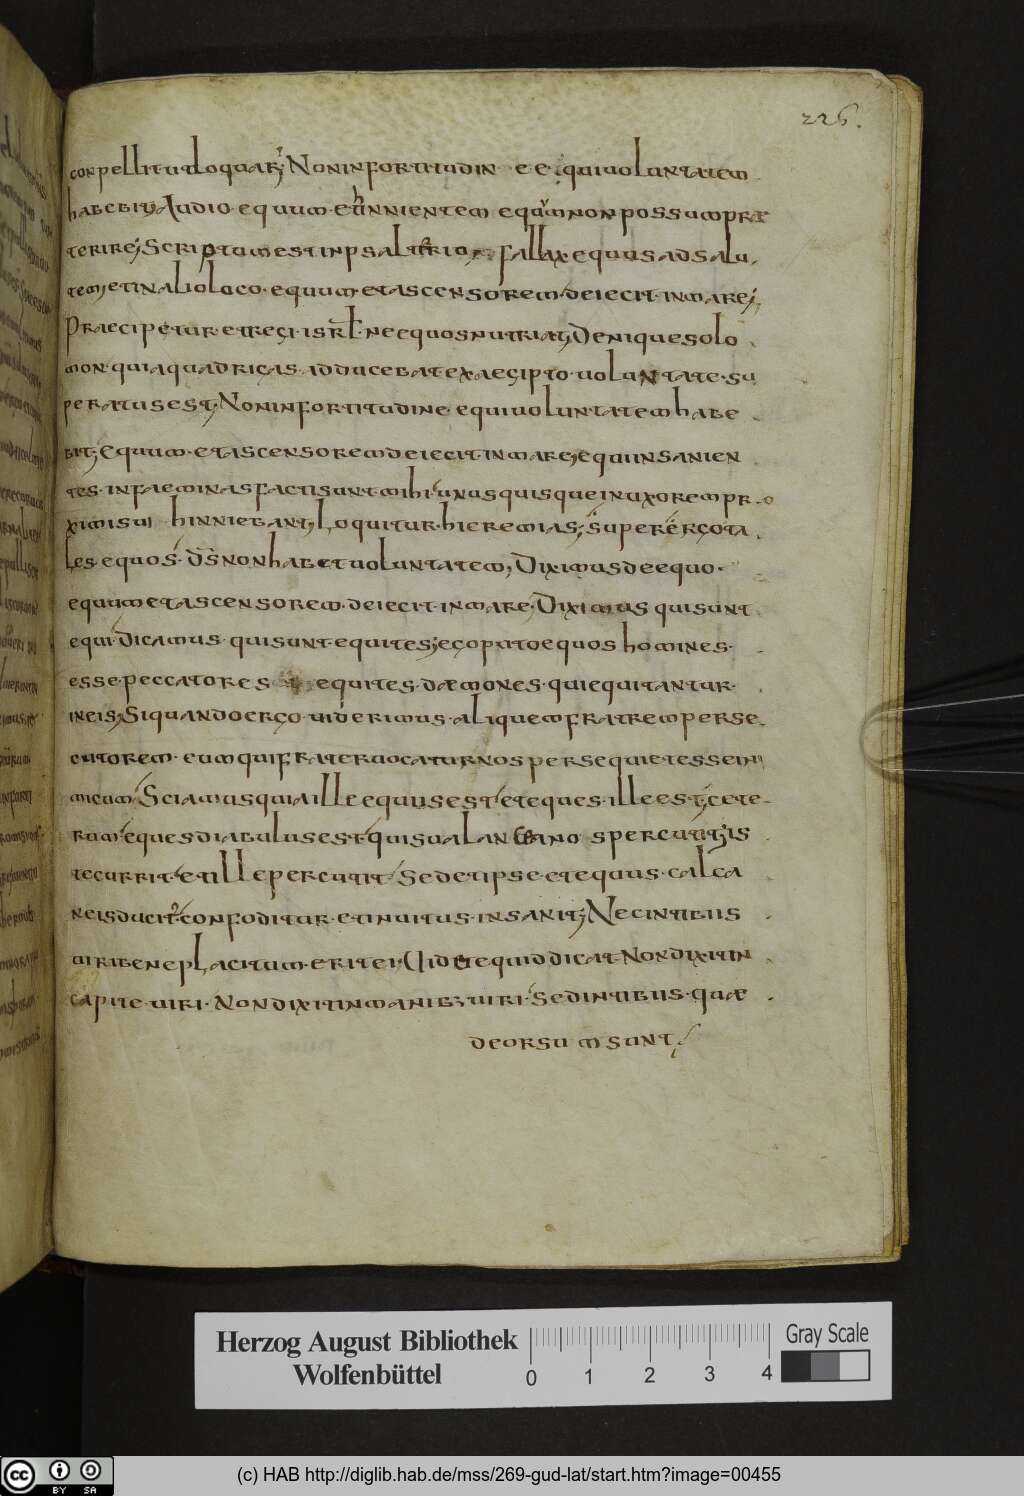 226.
conpellit ut loquar; Non in fortitudine equi uoluntatem
habebit; Audio equum et hinnientem equum non possum præ
terire; Scriptum est in psalterio fallax equus ad salu
tem et in alio loco equum et ascensorem deiecit in mare;
Praecipetur et regi isrl ne equos nutriat; Denique solo
mon quia quadrigas adducebat ex aegipto uoluntate su
peratus est; Non in fortitudine equi uoluntatem habe
bit; Equum et ascensorem deiecit in mare; equi insanien
tes in faeminas facti sunt mihi unusquisque in uxorem pro
ximi sui hinniebant; Loquitur hieremias; super ergo ta
les equos ds non habet uoluntatem; Diximus de equo
equum et ascensorem deiecit in mare; Diximus qui sunt
equi dicamus qui sunt equites; ego puto equos homines
esse peccatores equites dæmones qui equitantur
in eis; Si quando ergo uiderimus aliquem fratrem perse
cutorem eum qui frater uocatur nos persequi et esse ini
micum Sciamus quia ille equus est et eques ille est; cete
rum eques diabulus est qui sua lancea nos percutit; is
te currit et ille percutit Sed et ipse et equus calca
neis ducitur confoditur et inuitus insanit; Nec in tibiis
uiri beneplacitum erit ei Uidete quid dicat Non dixit in
capite uiri Non dixit in manib; uiri Sed in tibiis quæ
deorsum sunt
Herzog August Bibliothek
Wolfenbüttel
0 1 2 3 4
Gray Scale
cc BY SA
(c) HAB http://diglib.hab.de/mss/269-gud-lat/start.htm?image=00455